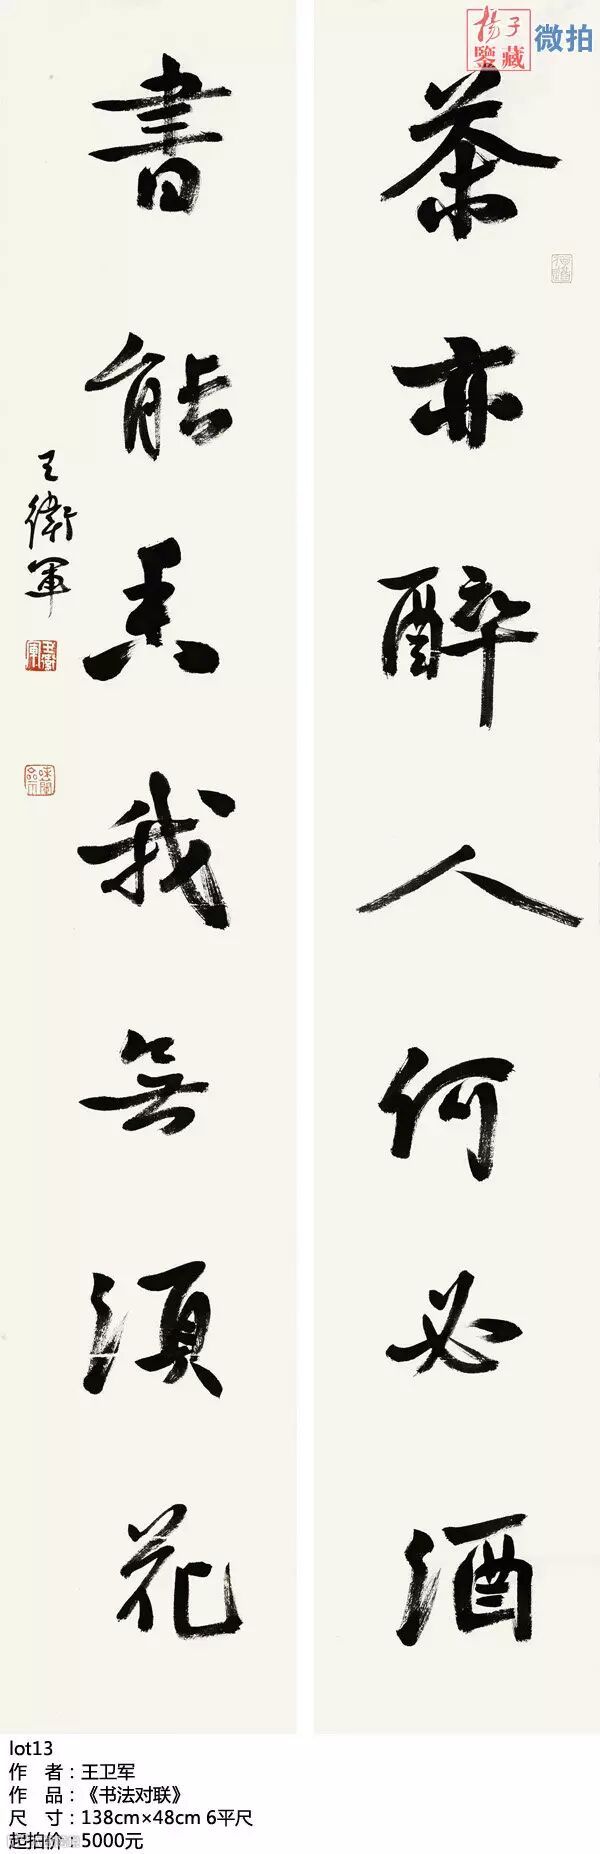 揚子
鑒藏
微拍
茶亦醉人何必酒
書能香我無須花
王衛軍
lot13
作 者：王卫军
作 品：《书法对联》
尺 寸：138cm×48cm 6平尺
起拍价：5000元